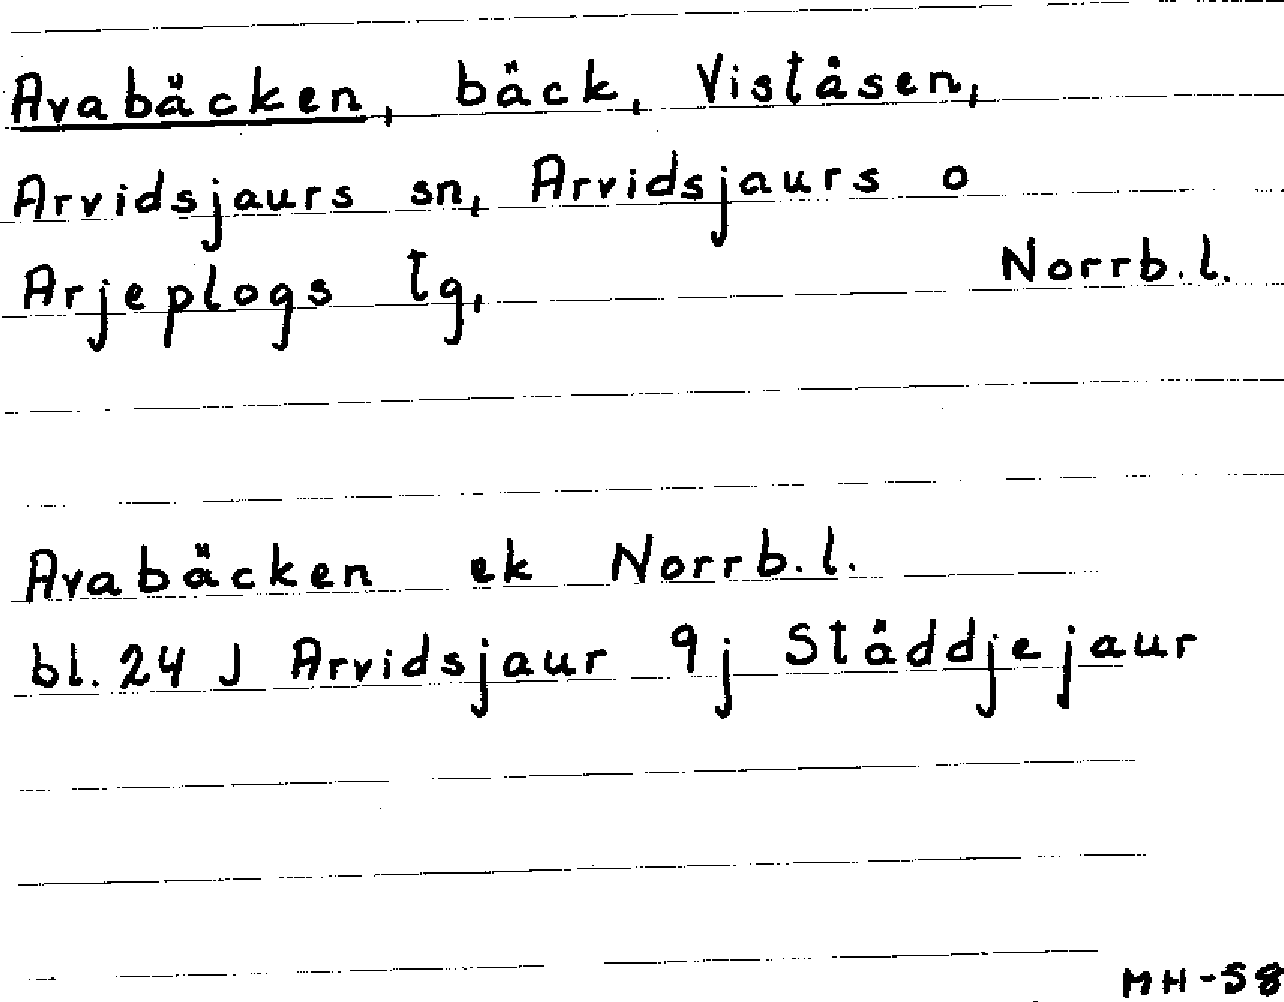 Avabäcken, bäck, Viståsen,
Arvidsjaurs sn, Arvidsjaurs o
Arjeplogs tg, Norrb.l.
Avabäcken ek Norrb.l.
bl. 24 J Arvidsjaur 9j Ståddjejaur
MH-58